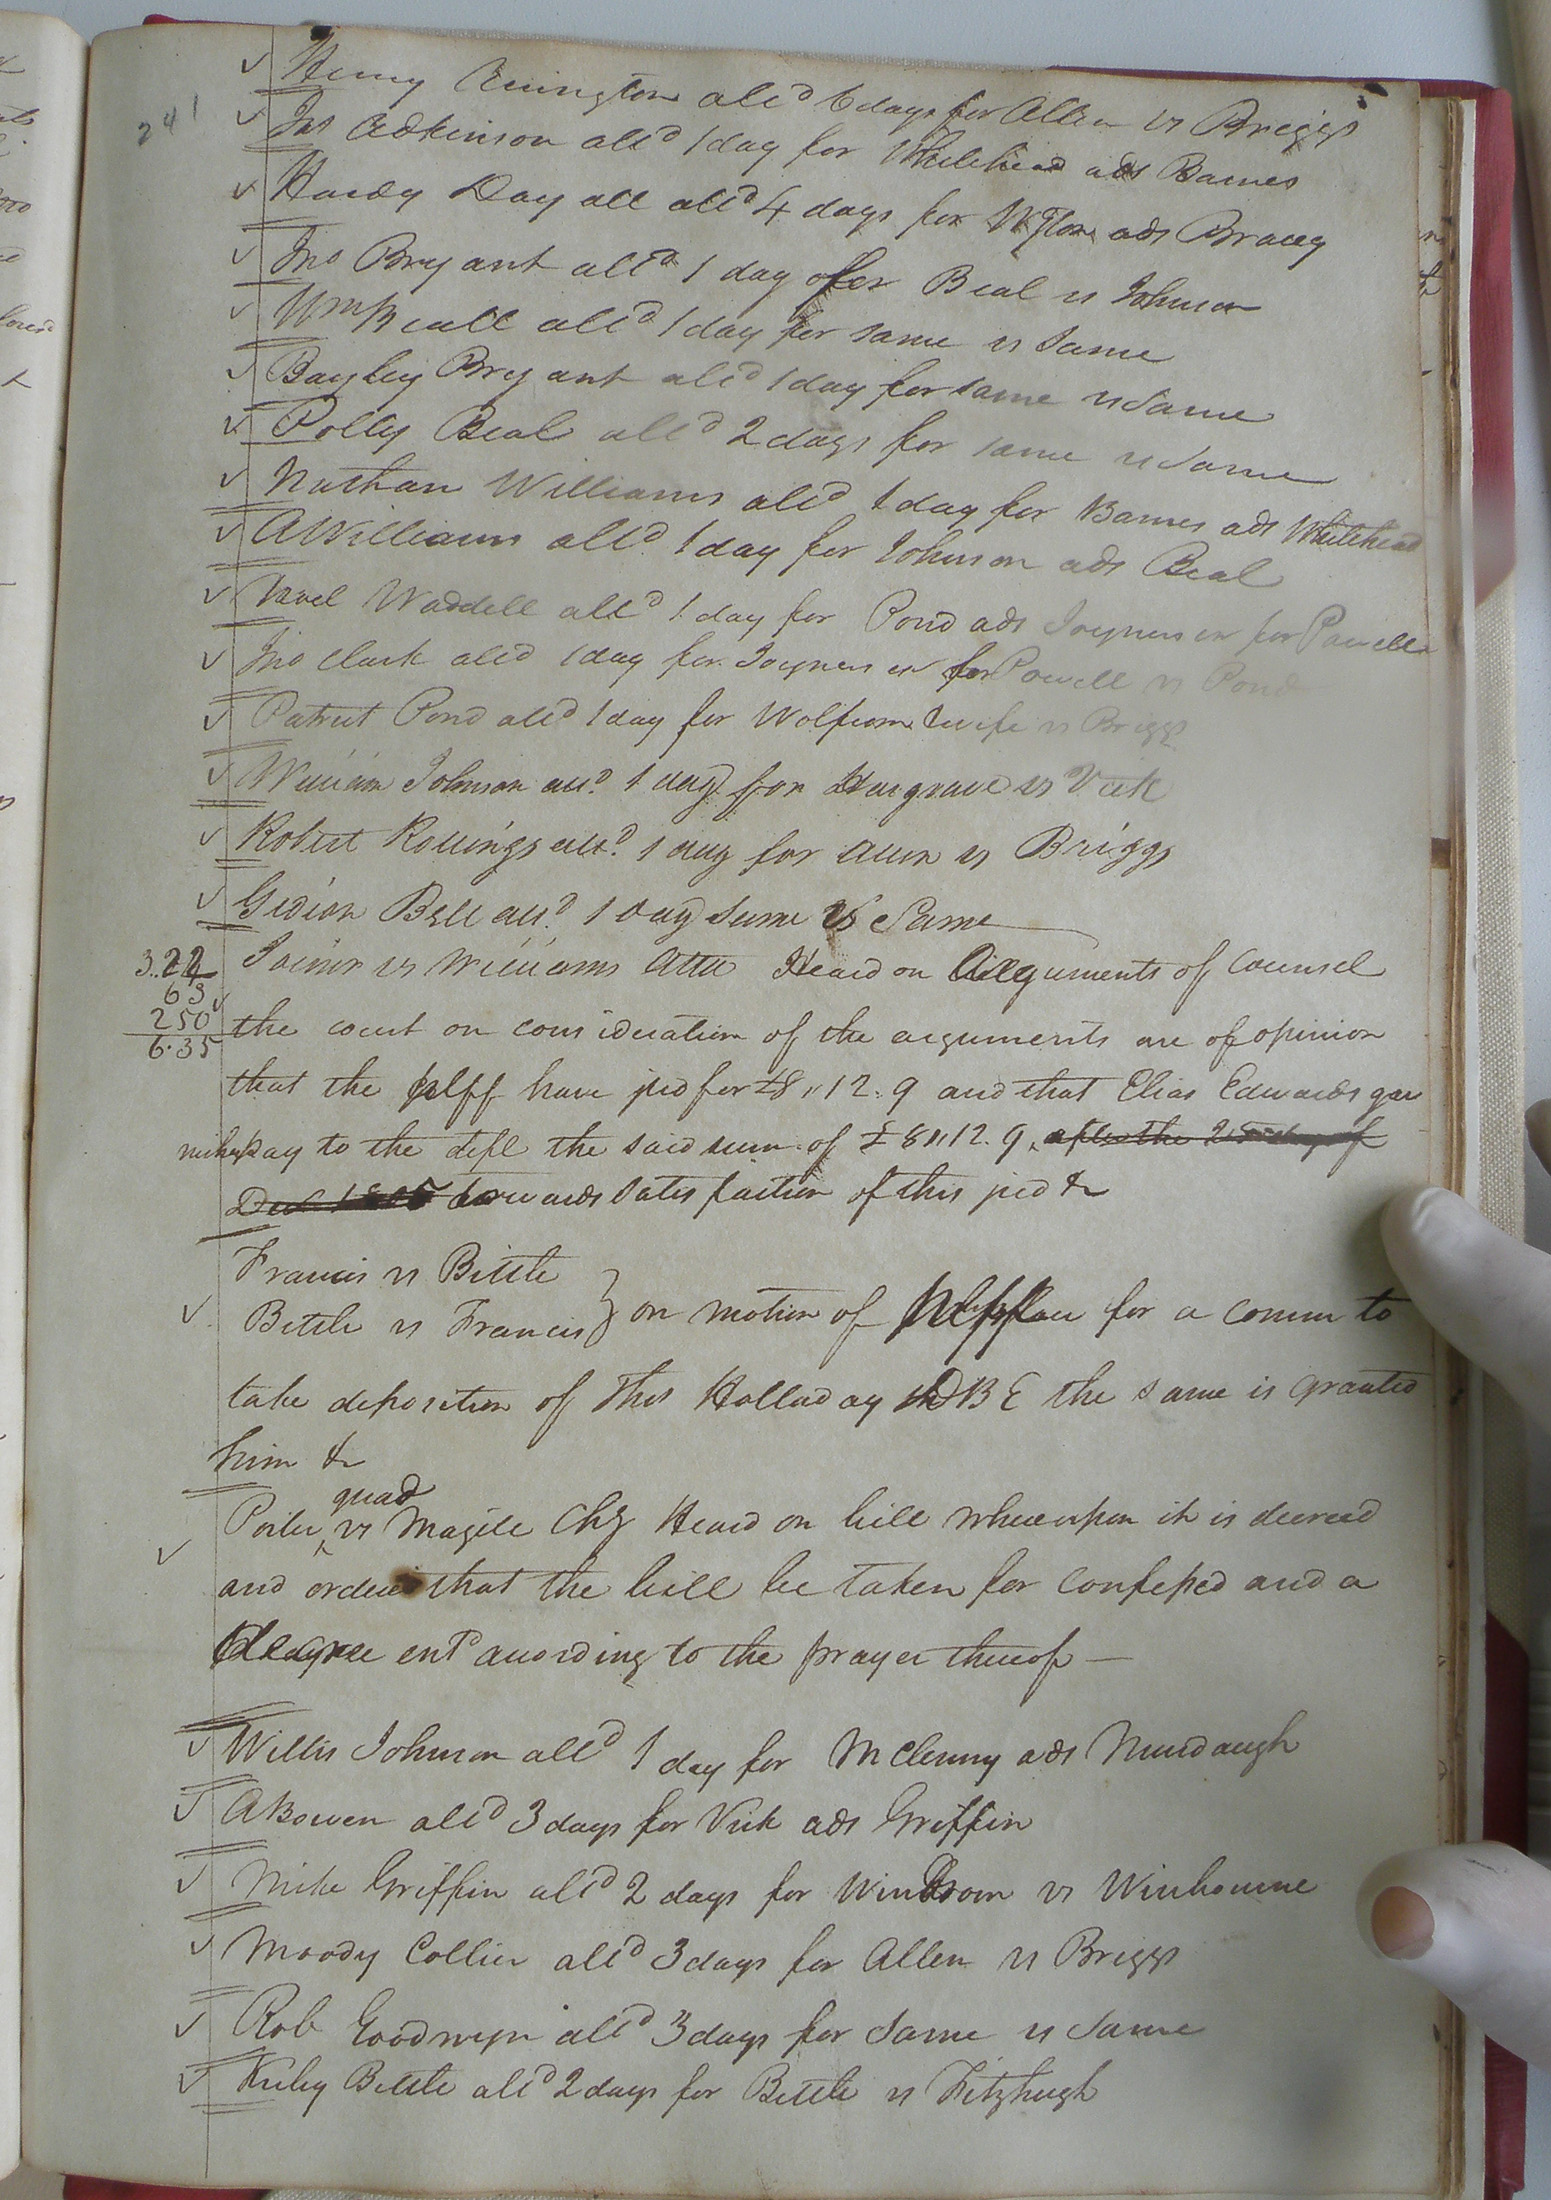 241
Henry Errington all'd 6 days for Allen vs Briggs
Jas Adkinson all'd 1 day for Whitehead ads Barnes
Hardy Day all all'd 4 days for ads Bracey
Jno Bryant all'd 1 day for Beal vs Johnson
Wm Beall all'd 1 day for same vs Same
Bayley Bryant all'd 1 day for same vs Same
Polly Beal all'd 2 days for same vs Same
Nathan Williams all'd 1 day for Barnes ads Whitehead
A Williams all'd 1 day for Johnson ads Beal
Waddell all'd 1 day for Pond ads Joyners exr for Powell
Jno Clark all'd 1 day for Joyners exr for Powell vs Pond
Patrick Pond all'd 1 day for & wife vs Briggs
William Johnson all'd 1 day for Hargrave vs Vick
Robert Rollings all'd 1 day for Allen vs Briggs
Gideon Bell all'd 1 day Same vs Same
3.22
63
250
6.35
Joiner vs Williams Atta Heard on Arguments of Counsel
the court on consideration of the arguments are of opinion
that the plff have jud for £8,,12.9 and that Elias Edwards gar
nishe pay to the deft the said sum of £8,,12.9 after the day of
Dec 1805 towards Satisfaction of this jud &
Francis vs Bittle
Bittle vs Francis } on motion of for a comm to
take deposition of Thos Holladay D B E the same is granted
him &
Porter quad vs Magile Chy Heard on bill whereupon it is decreed
and ordered that the bill be taken for confessed and a
decree ent'd according to the prayer thereof —
Willis Johnson all'd 1 day for McClenny ads Murdaugh
A Bowen all'd 3 days for Vick ads Griffin
Mike Griffin all'd 2 days for Windrom vs Winbourne
Moody Collier all'd 3 days for Allen vs Briggs
Rob Goodwyn all'd 3 days for Same vs Same
Kirby Bittle all'd 2 days for Bittle vs Fitzhugh